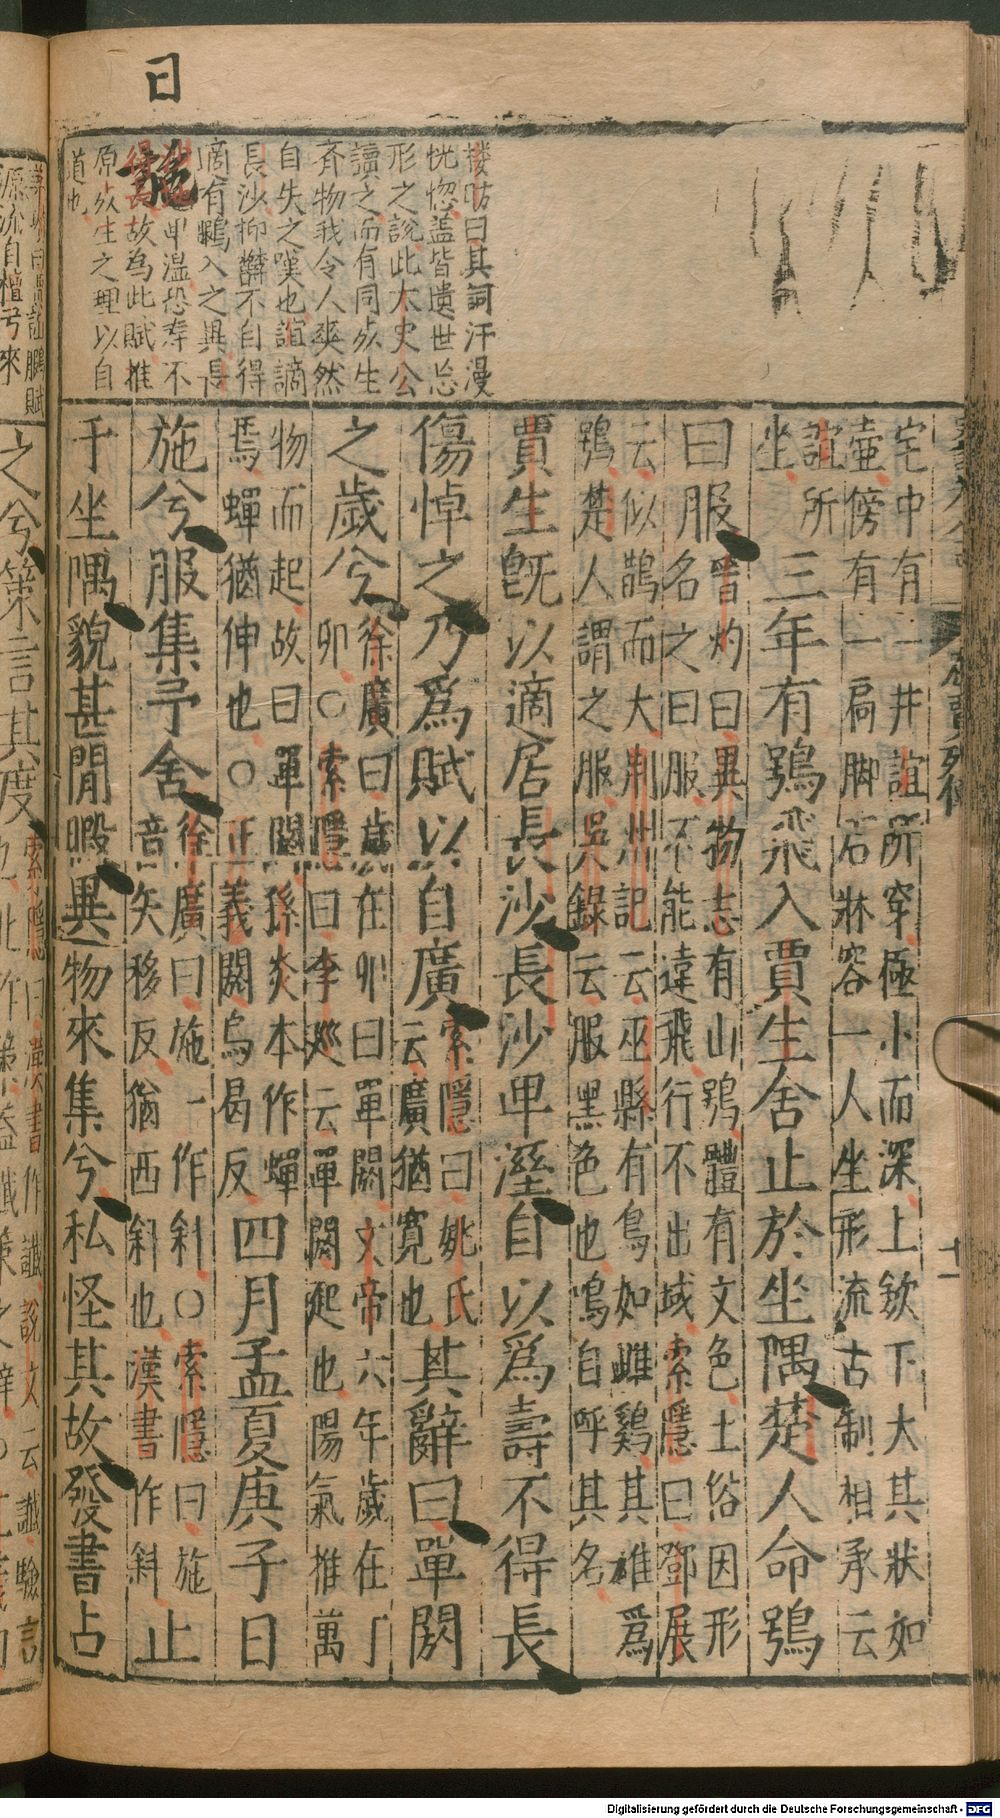 日
樓昉曰其詞汗漫
恍惚蓋皆遺世忘
形之說此太史公
讀之而有同死生
齊物我令人爽然
自失之嘆也誼謫
長沙抑鬱不自得
適有鵩入之異長
沙地卑濕恐壽不
得長故為此賦推
原死生之理以自
道也
宅中有一井誼所穿極小而深上歛下大其狀如
壷傍有一扃脚石牀容一人坐形流古制相承云
誼所
坐
三年有鴞飛入賈生舍止於坐隅楚人命鴞
曰服
晋灼曰異物志有山鴞體有文色土俗因形
名之曰服不能遠飛行不出域索隱曰鄧展
云似鵲而大荆州記云巫縣有鳥如雌鷄其雄爲
鴞楚人謂之服吳錄云服黑色也鳴自呼其名
賈生旣以適居長沙長沙卑溼自以爲壽不得長
傷悼之乃爲賦以自廣
索隱曰姚氏
云廣猶寛也
其辭曰單閼
之歲兮
徐廣曰歲在卯曰單閼文帝六年歲在丁
卯○索隱曰李巡云單閼起也陽氣推萬
物而起故曰單閼孫炎本作蟬
焉蟬猶伸也○正義閼烏曷反
四月孟夏庚子日
施兮服集予舍
徐廣曰施一作斜○索隱曰施
音矢移反猶西斜也漢書作斜
止
于坐隅貌甚閒暇異物來集兮私怪其故發書占
之兮筴言其度
源流自檀弓來
Digitalisierung gefördert durch die Deutsche Forschungsgemeinschaft - DFG